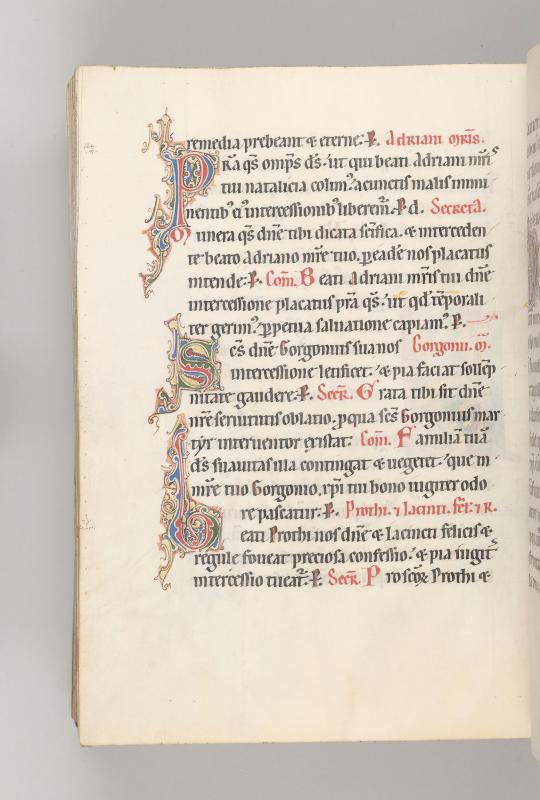 remedia prebeant & eterne. P. Adriani mr̄is.
PRa q̄s om̄ps d̄s. ut qui beati Adriani mr̄is
tui natalicia colim᷒. a cunctis malis immi
nentib᷒ ei᷒ intercessionib᷒ liberem᷒. P. d. Secreta.
Munera q̄s dn̄e tibi dicata sc̄ifica. & interceden
te beato Adriano mr̄e tuo. ꝑ eadē nos placatus
intende. P. Com̄. Beati Adriani mr̄is tui dn̄e
intercessione placatus pr̄a q̄s. ut qd̄ tēporali
ter gerim᷒. ꝑpetua saluatione capiam᷒. P.
Sc̄s dn̄e Gorgonius sua nos Gorgonii. m̄.
intercessione letificet. & pia faciat sollēp
nitate gaudere. P. Secr̄. Grata tibi sit dn̄e
nr̄e seruitutis oblatio. ꝓ qua sc̄s Gorgonius mar
tyr interuentor existat. Com̄. Familiā tuā
d̄s suauitas illa contingat & uegetet. que in
mr̄e tuo Gorgonio. xp̄i tui bono iugiter odo
re pascatur. P. Prothi. ⁊ Iacinti. fēl. ⁊ R.
Beati Prothi nos dn̄e & Iacincti felicis &
regule foueat preciosa confessio. & pia iugit̄
intercessio tueat᷒. P. Secr̄. Pro sc̄oꝝ Prothi &